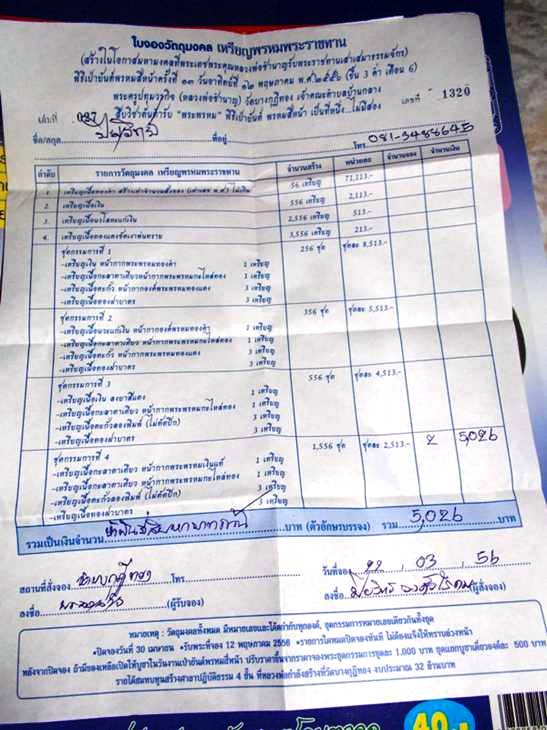 ใบจองวัตถุมงคล เหรียญพรหมพระราชทาน
(สร้างในโอกาสมหามงคลที่พระเดชพระคุณหลวงพ่อชำนาญรับพระราชทานเสาเสมาธรรมจักร)
พิธีเป่ายันต์พรหมสี่หน้าครั้งที่ ๑๓ วันอาทิตย์ที่ ๑๒ พฤษภาคม พ.ศ.๒๕๕๖ (ขึ้น 3 ค่ำ เดือน 6)
พระครูปทุมวรกิจ (หลวงพ่อชำนาญ) วัดบางกุฎีทอง เจ้าคณะตำบลบ้านกลาง
027 สืบวิชาต้นตำรับ "พระพรหม" พิธีเป่ายันต์ พรหมสี่หน้า เป็นที่หนึ่ง..ไม่มีสอง เลขที่ 1320
ชื่อ/สกุล ที่อยู่ โทร 081-3488645
ลำดับ รายการวัตถุมงคล เหรียญพรหมพระราชทาน จำนวนสร้าง หน่วยละ จำนวนจอง จำนวนเงิน
1. 56 เหรียญ 71,113.-
2. เหรียญเนื้อเงิน 556 เหรียญ 2,113.-
3. เหรียญเนื้อนวโลหะแก่เงิน 2,556 เหรียญ 513.-
4. 3,556 เหรียญ 213.-
ชุดกรรมการที่ 1 256 ชุด ชุดละ 8,513.-
-เหรียญเงิน หน้ากากพระพรหมทองคำ 1 เหรียญ
-เหรียญเนื้อกะลาตาเดียว หน้ากากพระพรหมกะไหล่ทอง 1 เหรียญ
-เหรียญเนื้อตะกั่ว หน้ากากองค์พระพรหมทองแดง 3 เหรียญ
-เหรียญเนื้อทองฝาบาตร 3 เหรียญ
ชุดกรรมการที่ 2 356 ชุด ชุดละ 5,513.-
-เหรียญเนื้อนวะแก่เงิน หน้ากากองค์พรหมทองคำ 1 เหรียญ
-เหรียญเนื้อกะลาตาเดียว หน้ากากพระพรหมกะไหล่ทอง 1 เหรียญ
-เหรียญเนื้อตะกั่ว หน้ากากพระพรหมทองแดง 3 เหรียญ
-เหรียญเนื้อทองฝาบาตร 3 เหรียญ
ชุดกรรมการที่ 3 556 ชุด ชุดละ 4,513.-
-เหรียญเนื้อเงิน ลงยาสีแดง 1 เหรียญ
-เหรียญเนื้อกะลาตาเดียว หน้ากากพระพรหมกะไหล่ทอง 1 เหรียญ
-เหรียญเนื้อตะกั่วลองพิมพ์ (ไม่ตัดปีก) 3 เหรียญ
-เหรียญเนื้อทองฝาบาตร 3 เหรียญ
ชุดกรรมการที่ 4 1,556 ชุด ชุดละ 2,513.- 2 5,026
-เหรียญเนื้อกะลาตาเดียว หน้ากากพระพรหมเงินแท้ 1 เหรียญ
-เหรียญเนื้อกะลาตาเดียว หน้ากากพระพรหมกะไหล่ทอง 1 เหรียญ
-เหรียญเนื้อตะกั่วลองพิมพ์ (ไม่ตัดปีก) 3 เหรียญ
-เหรียญเนื้อทองฝาบาตร 3 เหรียญ
รวมเป็นเงินจำนวน บาท (ตัวอักษรบรรจง) รวม 5,026 บาท
สถานที่สั่งจอง โทร วันที่จอง 22 / 03 / 56
ลงชื่อ (ผู้รับจอง) ลงชื่อ (ผู้สั่งจอง)
หมายเหตุ : วัตถุมงคลทั้งหมด มีหมายเลขและโค้ดกำกับทุกองค์, ชุดกรรมการหมายเลขเดียวกันทั้งชุด
•ปิดจองวันที่ 30 เมษายน •รับพระที่จอง 12 พฤษภาคม 2556 •รายการใดหมดปิดจองทันที ไม่ต้องแจ้งให้ทราบล่วงหน้า
หลังจากปิดจอง ถ้ามีของเหลือเปิดให้บูชาในวันงานเป่ายันต์พรหมสี่หน้า ปรับราคาขึ้นจากราคาจองพระชุดกรรมการชุดละ 1,000 บาท ชุดแยกบูชาเดี่ยวองค์ละ 500 บาท
รายได้สมทบทุนสร้างศาลาปฏิบัติธรรม 4 ชั้น ที่หลวงพ่อกำลังสร้างที่วัดบางกุฎีทอง งบประมาณ 32 ล้านบาท